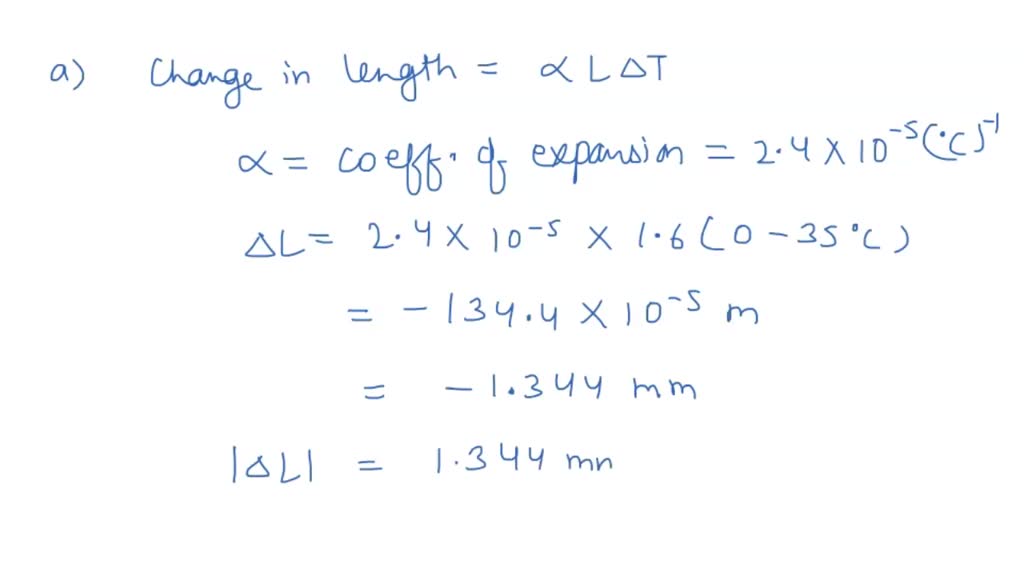 a) Change in length = α L ΔT
α = coeff. of expansion = 2.4 × 10⁻⁵ (°C)⁻¹
ΔL = 2.4 × 10⁻⁵ × 1.6 (0 - 35°C)
= - 134.4 × 10⁻⁵ m
= - 1.344 mm
|ΔL| = 1.344 mm